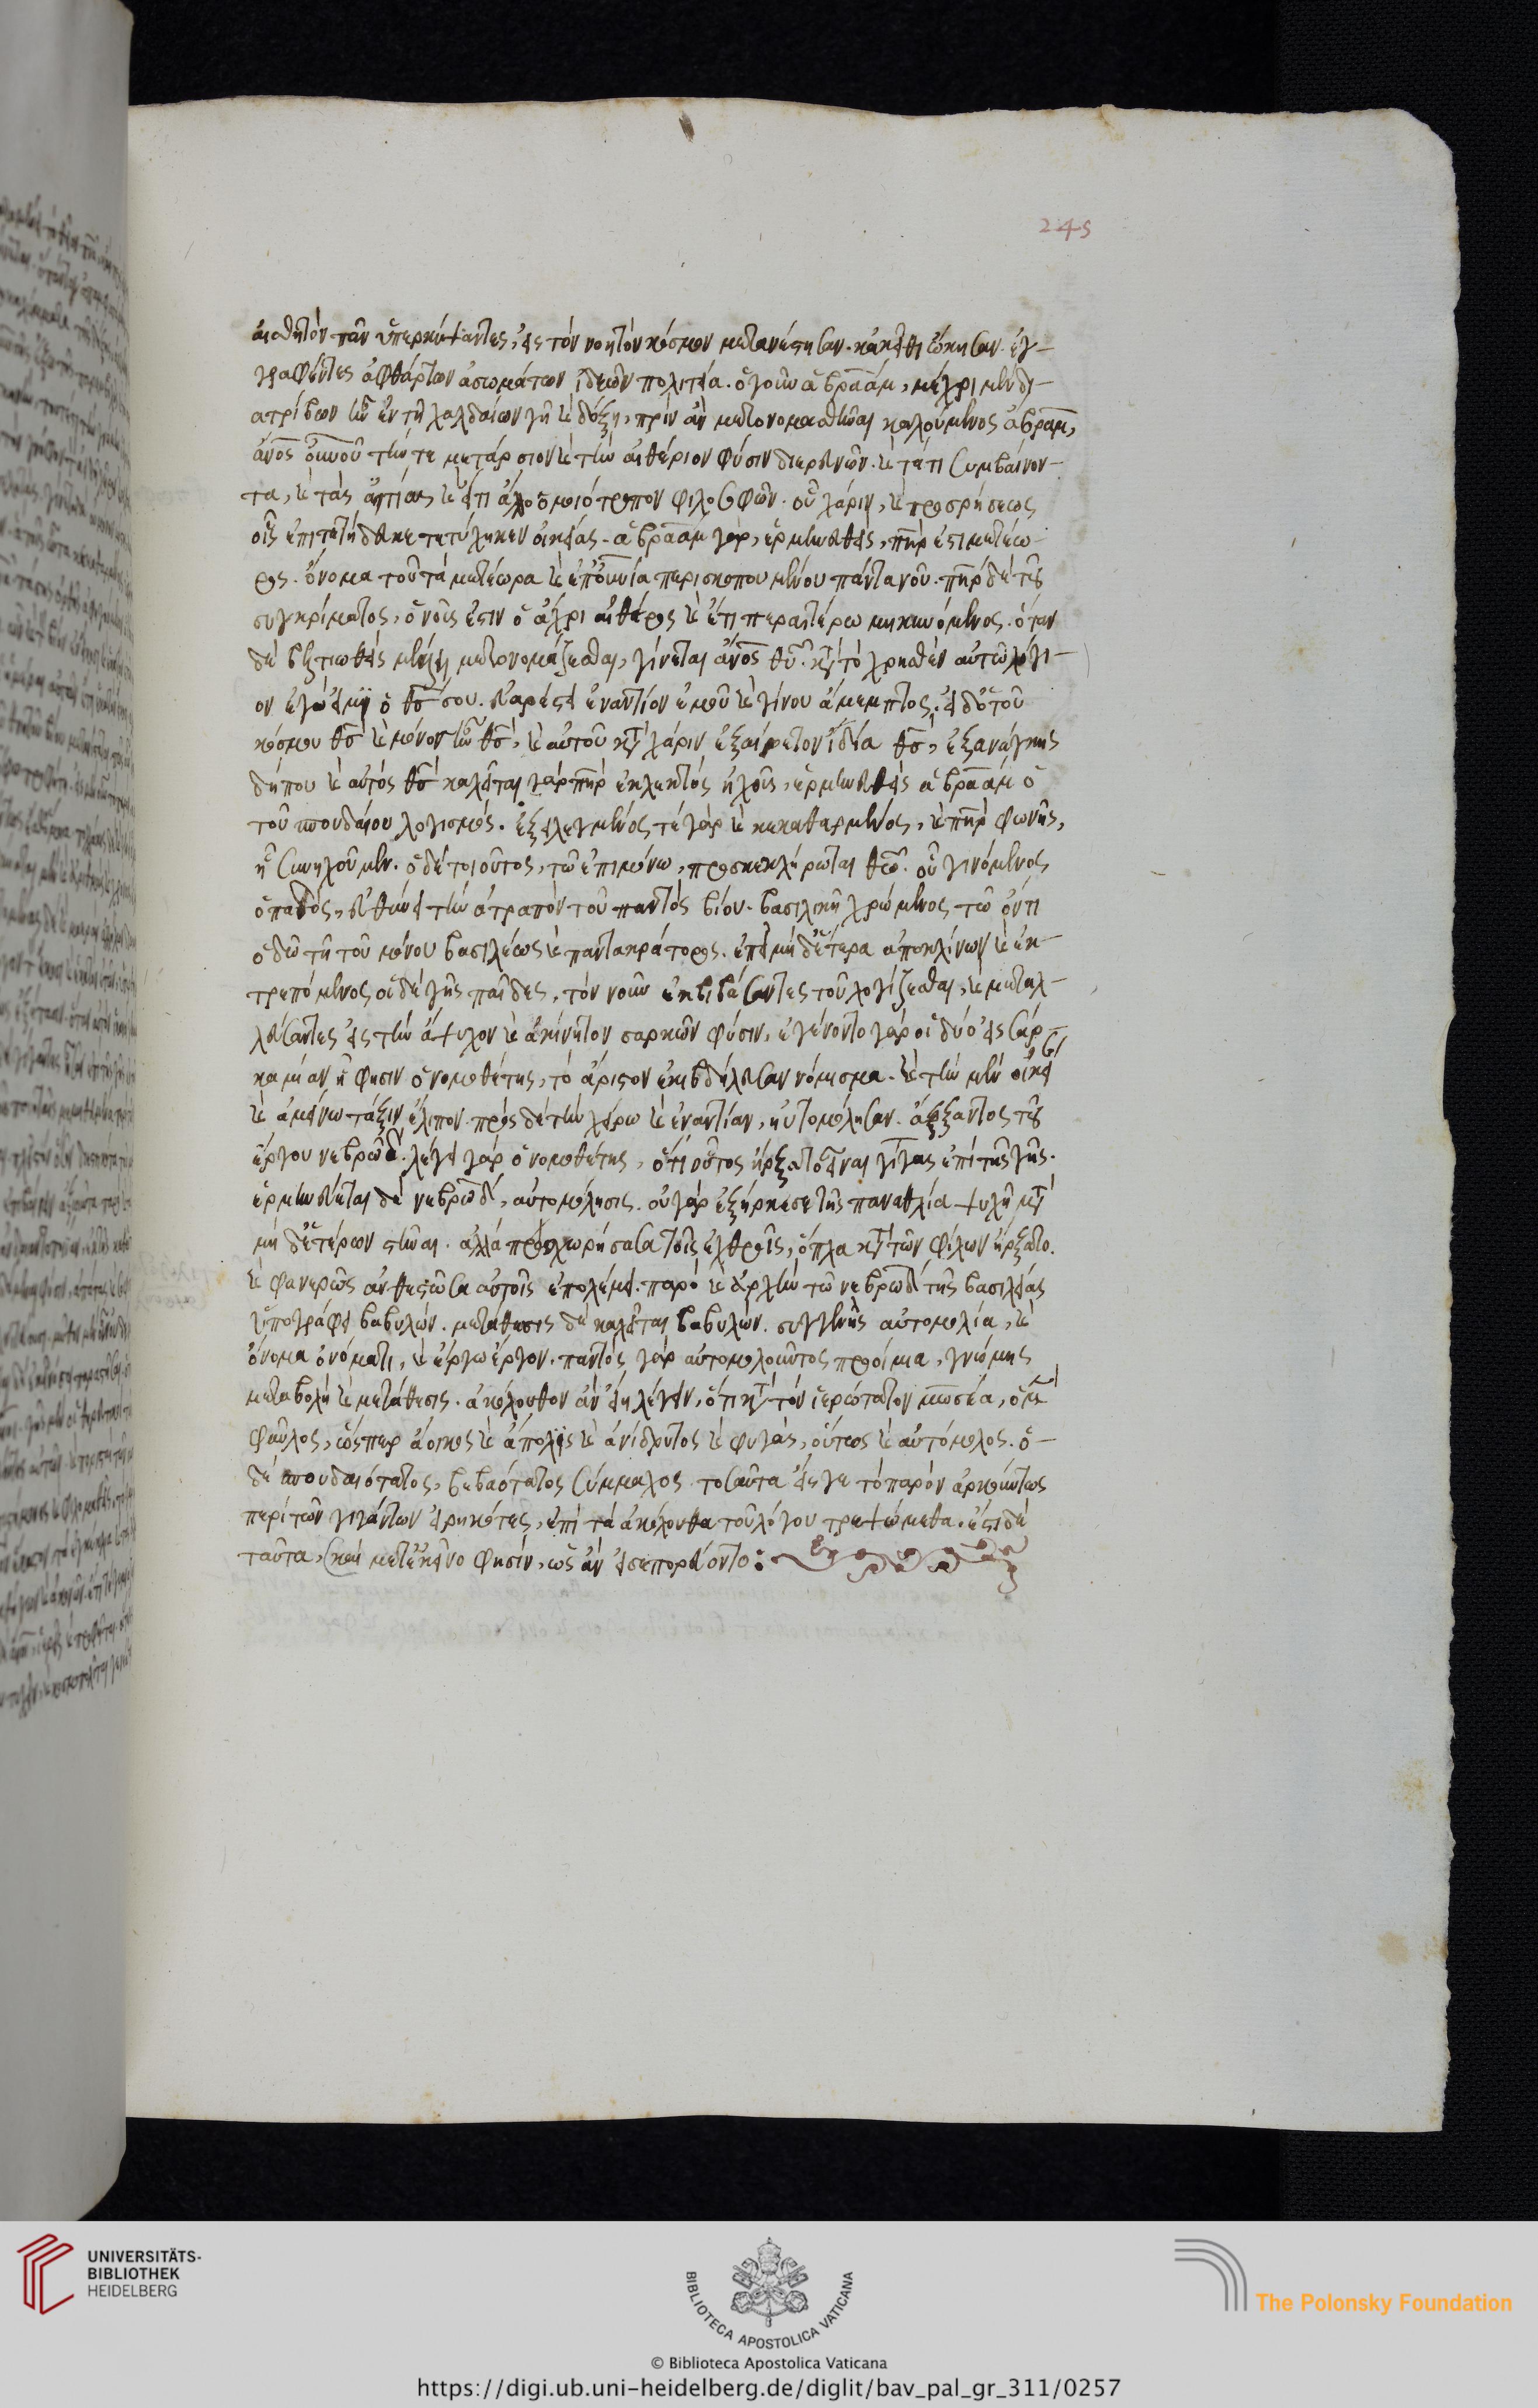 245
αἰσθητὸν πᾶν ὑπερκύψαντες, εἰς τὸν νοητὸν κόσμον μετανέστησαν. κἀκεῖθι ὤκησαν. ἐγ-
γραφέντες ἀφθάρτων ἀσωμάτων ἰδεῶν πολιτεία. ὁ γοῦν ἀβραάμ, μέχρι μὲν δι-
ατρίβων ἦν ἐν τῇ χαλδαίων γῇ καὶ δόξῃ, πρὶν ἂν μετονομασθῆναι καλούμενος ἀβραμ,
ἄνος οὐνοῦ τήν τε μετάρσιον καὶ τὴν αἰθέριον φύσιν διερευνῶν. καὶ τά τι συμβαίνον-
τα, καὶ τὰς αἰτίας, καὶ εἴ τι ἄλλο ὁμοιότροπον φιλοσοφῶν. οὗ χάριν, καὶ προσρήσεως
οἷς ἐπιτετήδευκε τετύχηκεν οἰκείας. ἀβραὰμ γὰρ, ἑρμηνευθεὶς, πηρ ἐστι μετέω-
ρος. ὄνομα τοῦ τὰ μετέωρα καὶ ἐπουνια περισκοπουμένου πάντα νοῦ. πηρ δὲ τοῦ
συγκρίματος, ὁ νοῦς ἐστιν ὁ ἄχρι αἰθέρος καὶ ἔτι περαιτέρω μηκυνόμενος. ὅταν
δὲ βελτιωθεὶς μέλλῃ μετονομάζεσθαι, γίνεται ἄνος θυ. κατὰ τὸ χρησθὲν αὐτῷ λόγι-
ον ἐγώ εἰμι ὁ θς σου. εὐαρέστει ἐναντίον ἐμοῦ καὶ γίνου ἄμεμπτος. εἰ δὲ ὁ τοῦ
κόσμου θς καὶ μόνον ὢν θς, καὶ αὐτοῦ κατὰ χάριν ἐξαίρετον ἰδία θς, ἐξανάγκης
δήπου καὶ αὐτὸς θς καλεῖται γὰρ πηρ ἐκλεκτὸς ἠχοῦς, ἑρμηνευθεὶς ἀβραάμ ὁ
τοῦ σπουδαίου λογισμός. ἐξειλεγμένος τὲ γὰρ καὶ κεκαθαρμένος, καὶ πηρ φωνῆς,
ᾗ συνηχοῦμεν. ὁ δὲ τοιοῦτος, τῷ ἑπιμόνω, προσκεκλήρωται θεῷ. οὗ γινόμενος
ὀπαδὸς, εὐθύνει τὴν ἀτραπὸν τοῦ παντὸς βίου. βασιλικῇ χρώμενος τῷ ὄντι
ὁδῷ τῇ τοῦ μόνου βασιλέως καὶ παντοκράτορος. ἐπὶ μηδέτερα ἀποκλίνων καὶ ἐκ-
τρεπόμενος οἱ δὲ γῆς παῖδες, τὸν νοῦν ἐκβιβάσαντες τοῦ λογίζεσθαι, καὶ μεταλ-
λεύσαντες εἰς τὴν ἄψυχον καὶ ἀκίνητον σαρκῶν φύσιν, ἐγένοντο γὰρ οἱ δύο εἰς σάρ-
κα μίαν ᾗ φησιν ὁ νομοθέτης, τὸ ἄριστον ἐκιβδήλευσαν νόμισμα. καὶ τὴν μὲν οἰκεί
καὶ ἀμείνω τάξιν ἔλιπον. πρὸς δὲ τὴν χείρω καὶ ἐναντίαν, ηὐτομόλησαν. ἄρξαντος τοῦ
ἔργου νεβρώδ. λέγει γὰρ ὁ νομοθέτης, ὅτι οὗτος ἤρξατο εἶναι γίγας ἐπὶ τῆς γῆς.
ἑρμηνεύεται δὲ νεβρωδ, αὐτομόλησις. οὐ γὰρ ἐξήρκεσε τῆς παναθλία ψυχῇ μετὰ
μηδετέρων στῆναι. ἀλλὰ προσχωρήσασα τοῖς ἐχθροῖς, ὅπλα κατὰ τῶν φίλων ἤρξατο.
καὶ φανερῶς ἀνθεστῶσα αὐτοῖς ἐπολέμει. παρὸ καὶ ἀρχὴν τῷ νεβρωδ τῆς βασιλείας
ὑπογράφει βαβυλών. μετάθεσις δὲ καλεῖται βαβυλών. συγγενὲς αὐτομολία, καὶ
ὄνομα ὀνόματι, καὶ ἔργω ἔργον. παντὸς γὰρ αὐτομολοῦντος προοίμια, γνώμης
μεταβολὴ καὶ μετάθεσις. ἀκόλουθον ἂν εἴη λέγειν, ὅτι κατὰ τὸν ἱερώτατον μωσέα, ὁ μὲν
φαῦλος, ὥσπερ ἄοικος καὶ ἄπολις καὶ ἀνίδρυτος καὶ φυγὰς, οὕτως καὶ αὐτόμολος. ὁ-
δὲ σπουδαιότατος, βεβαιότατος σύμμαχος. τοσαῦτα εἴς γε τὸ παρὸν ἀρκούντως
περὶ τῶν γιγάντων εἰρηκότες, ἐπὶ τὰ ἀκόλουθα τοῦ λόγου τρεψώμεθα. ἔστι δὲ
ταῦτα, καὶ μετ' ἐκεῖνο φησίν, ὡς ἂν εἰσεπορεύοντο:
UNIVERSITÄTS-
BIBLIOTHEK
HEIDELBERG
BIBLIOTECA APOSTOLICA VATICANA
The Polonsky Foundation
© Biblioteca Apostolica Vaticana
https://digi.ub.uni-heidelberg.de/diglit/bav_pal_gr_311/0257